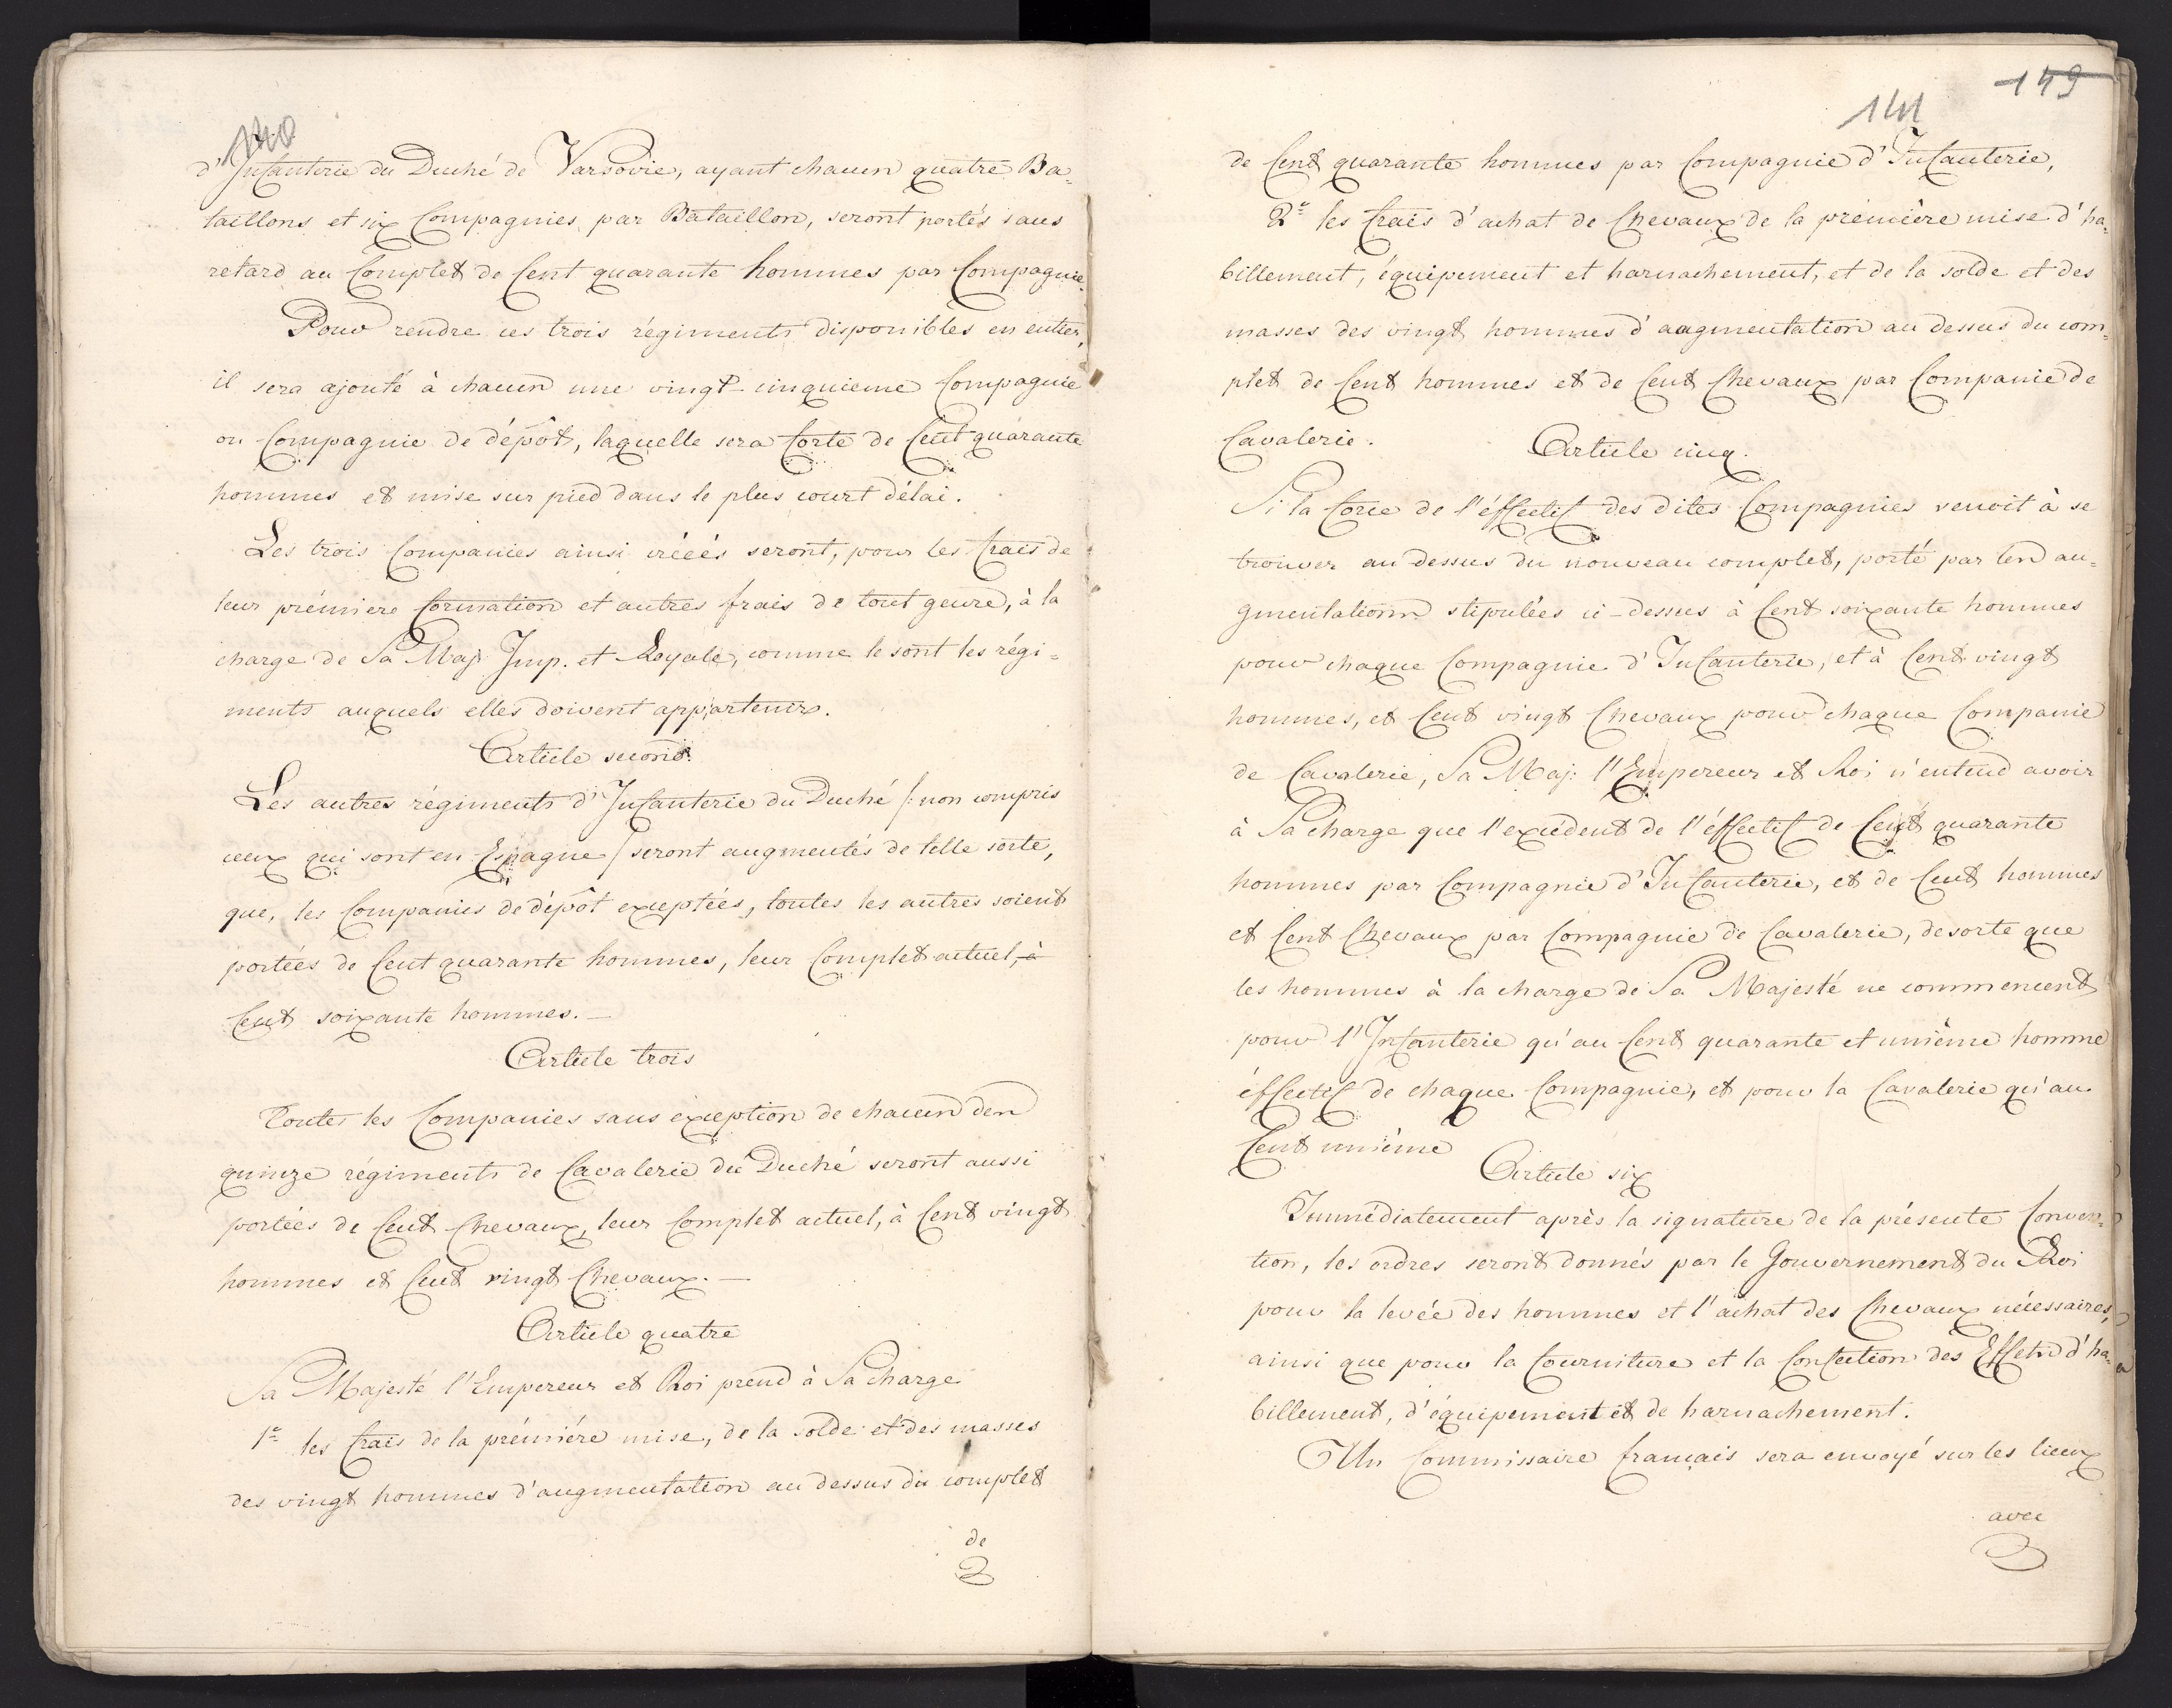 140
d'Infanterie du Duché de Varsovie, ayant chacun quatre Ba-
taillons et six Compagnies par Bataillon, seront portés sans
retard au Complet de Cent quarante hommes par Compagnie.
Pour rendre ces trois régiments disponibles en entier,
il sera ajouté à chacun une vingt-cinquieme Compagnie
ou Compagnie de dépôt, laquelle sera forte de Cent quarante
hommes et mise sur pied dans le plus court délai.
Les trois Companies ainsi créées seront, pour les frais de
leur prémiere formation et autres frais de tout genre, à la
charge de Sa Maj. Imp. et Royale, comme le sont les régi=
ments auquels elles doivent appartenir.
Article second.
Les autres régiments d'Infanterie du Duché /: non compris
ceux qui sont en Espagne / seront augmentés de telle sorte,
que, les Companies de dépôt exceptées, toutes les autres soient
portées de Cent quarante hommes, leur Complet actuel, à
Cent soixante hommes.—
Article trois
Toutes les Companies sans exception de chacun den
quinze régiments de Cavalerie du Duché seront aussi
portées de Cent Chevaux, leur Complet actuel, à Cent vingt
hommes et Cent vingt Chevaux.—
Article quatre
Sa Majesté l'Empereur et Roi prend à Sa charge
1e les frais de la prémiére mise, de la solde et des masses
des vingt hommes d'augmentation au dessus du complet
de
149
141
de Cent quarante hommes par Compagnie d'Infanterie,
2e les frais d'achat de Chevaux de la prémière mise d'ha=
billement, équipement et harnachement, et de la solde et des
masses des vingt hommes d'augmentation au dessus du com=
plet de Cent hommes et de Cent Chevaux par Companie de
Cavalerie.
Article cinq.
Si la force de l'éffectif des dites Compagnies venoit à se
trouver au dessus du nouveau complet, porté par len au=
gmentationn stipulées ci-dessus à Cent soixante hommes
pour chaque Compagnie d'Infanterie, et à Cent vingt
hommes, et Cent vingt Chevaux pour chaque Companie
de Cavalerie, Sa Maj: l'Empereur et Roi n'entend avoir
à Sa charge que l'excédent de l'éffectif de Cent quarante
hommes par Compagnie d'Infanterie, et de Cent hommes
et Cent Chevaux par Compagnie de Cavalerie, de sorte que
les hommes à la charge de Sa Majesté ne commencent
pour l'Infanterie qu'au Cent quarante et unième homme
éffectif de chaque Compagnie, et pour la Cavalerie qu'au
Cent unième
Article six
Immédiatement après la signature de la présente Conven=
tion, les ordres seront donnés par le Gouvernement du Roi
pour la levée des hommes et l'achat des Chevaux nécessaires,
ainsi que pour la fourniture et la Confection des Effets d'ha=
billement, d'équipement et de harnachement.
Un Commissaire français sera envoyé sur les lieux
avec